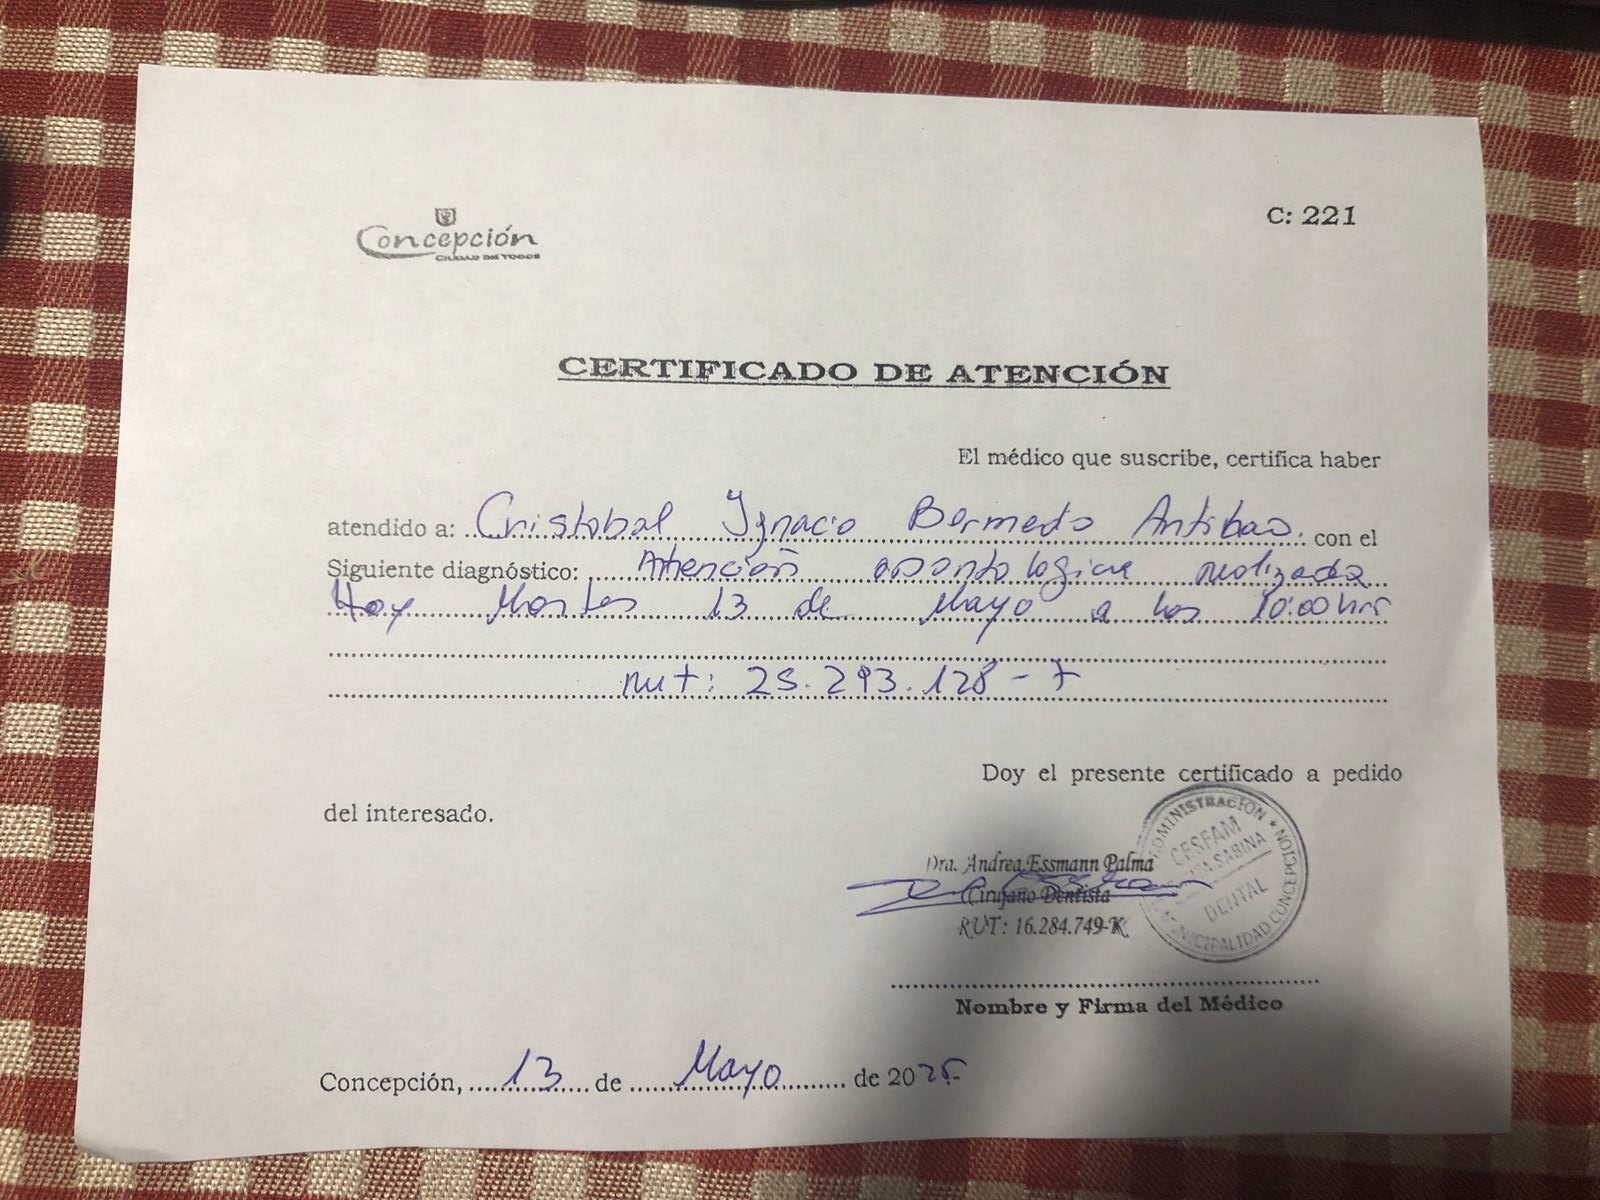 Concepción
CIUDAD DE TODOS
C: 221
CERTIFICADO DE ATENCIÓN
El médico que suscribe, certifica haber
atendido a: Cristobal Ignacio Bermedo Antibao. con el
Siguiente diagnóstico: Atención odontologica realizada
Hoy Martes 13 de Mayo a las 10:00 hrs
rut: 25.293.128-7
Doy el presente certificado a pedido
del interesado.
Dra. Andrea Essmann Palma
Cirujano Dentista
RUT: 16.284.749-K
ADMINISTRACION
MUNICIPALIDAD CONCEPCION
CESFAM
SABINA
DENTAL
Nombre y Firma del Médico
Concepción, 13 de Mayo de 2025